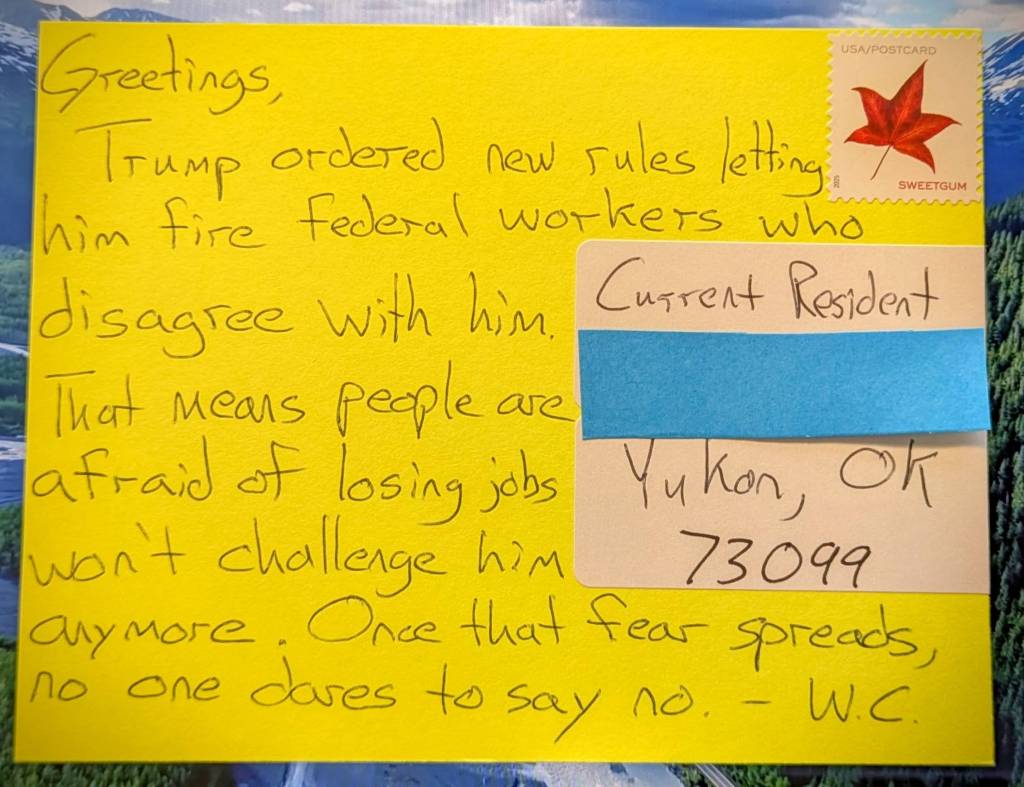 Greetings,
Trump ordered new rules letting
him fire federal workers who
disagree with him.
That means people are
afraid of losing jobs
won't challenge him
anymore. Once that fear spreads,
no one dares to say no. - W.C.
USA/POSTCARD
2025
SWEETGUM
Current Resident
Yukon, OK
73099